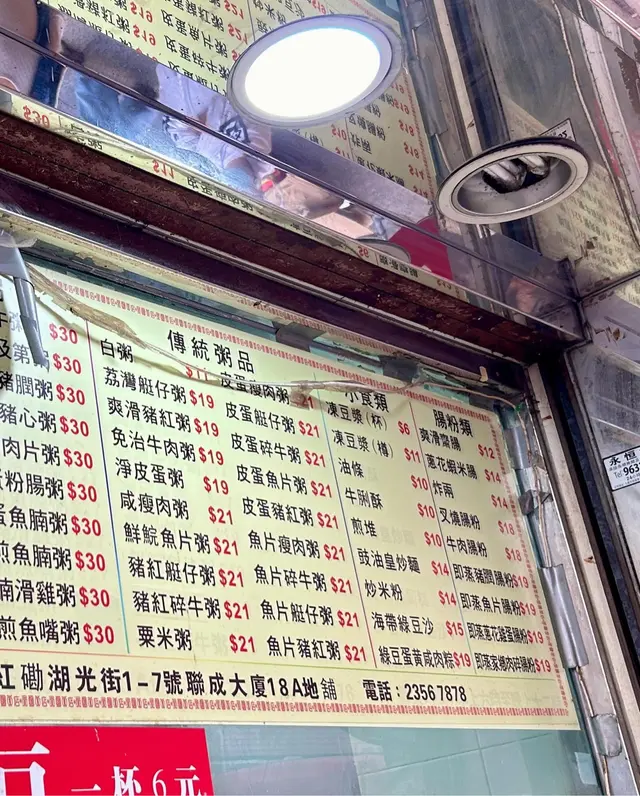 $30
$30
豬膶粥$30
豬心粥$30
肉片粥$30
粉腸粥$30
魚腩粥$30
煎魚腩粥$30
腩滑雞粥$30
煎魚嘴粥$30
傳統粥品
白粥 $11
荔灣艇仔粥 $19
爽滑豬紅粥 $19
免治牛肉粥 $19
淨皮蛋粥 $19
咸瘦肉粥 $21
鮮鯇魚片粥 $21
豬紅艇仔粥 $21
豬紅碎牛粥 $21
粟米粥 $21
皮蛋瘦肉粥 $21
皮蛋艇仔粥 $21
皮蛋碎牛粥 $21
皮蛋魚片粥 $21
皮蛋豬紅粥 $21
魚片瘦肉粥 $21
魚片碎牛粥 $21
魚片艇仔粥 $21
魚片豬紅粥 $21
小食類
凍豆漿（杯） $6
凍豆漿（樽） $11
油條 $10
牛脷酥 $10
煎堆 $10
豉油皇炒麵 $14
炒米粉 $14
海帶綠豆沙 $15
綠豆蛋黃咸肉粽 $19
腸粉類
爽滑齋腸 $12
蔥花蝦米腸 $14
炸兩 $14
叉燒腸粉 $18
牛肉腸粉 $18
即蒸豬膶腸粉 $19
即蒸魚片腸粉 $19
即蒸蔥花雞蛋腸粉 $19
即蒸家鄉肉碎腸粉 $19
江磡湖光街1-7號聯成大廈18A地舖 電話：23567878
一杯6元
永恒